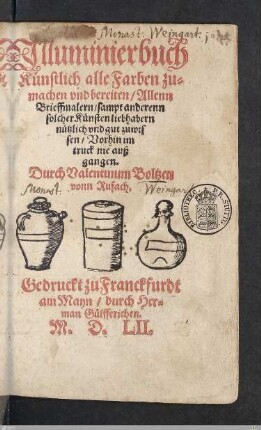 Monast. Weingart.
Illuminierbuch
Künstlich alle Farben zu-
machen vnd bereiten / Allenn
Brieffmalern / sampt anderenn
solcher Künsten liebhabern
nützlich vnd gut zuwis
sen / Vorhin im
truck nie auß
gangen.
Durch Valentinum Boltzen
vonn Rufach.
Monast. Weingar
Gedruckt zu Franckfurdt
am Mayn / durch Her-
man Gülfferichen.
M. D. LII.